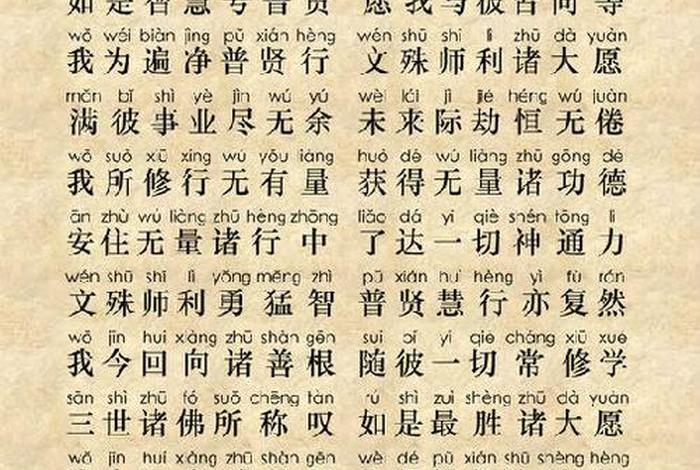 如是智慧号普贤 愿我与彼皆同等
wǒ wéi biàn jìng pǔ xián hèng wén shū shī lì zhū dà yuàn
我为遍净普贤行 文殊师利诸大愿
mǎn bǐ shì yè jìn wú yú wèi lái jì jié héng wú juàn
满彼事业尽无余 未来际劫恒无倦
wǒ suǒ xiū xíng wú yǒu liàng huò dé wú liàng zhū gōng dé
我所修行无有量 获得无量诸功德
ān zhù wú liàng zhū hèng zhōng liǎo dá yí qiè shén tōng lì
安住无量诸行中 了达一切神通力
wén shū shī lì yǒng měng zhì pǔ xián huì hèng yì fù rán
文殊师利勇猛智 普贤慧行亦复然
wǒ jīn huí xiàng zhū shàn gēn suí bǐ yí qiè cháng xiū xué
我今回向诸善根 随彼一切常修学
sān shì zhū fó suǒ chēng tàn rú shì zuì shèng zhū dà yuàn
三世诸佛所称叹 如是最胜诸大愿
wǒ jīn huí xiàng zhū shàn gēn wèi dé pǔ xián shū shèng hèng